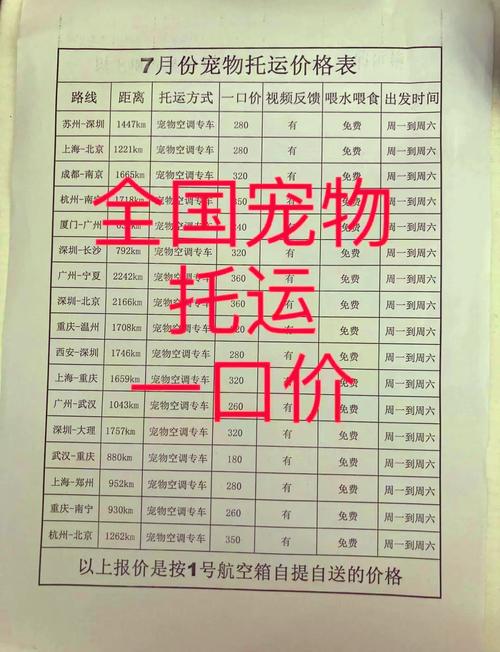 7月份宠物托运价格表
路线 距离 托运方式 一口价 视频反馈 喂水喂食 出发时间
苏州-深圳 1447km 宠物空调专车 280 有 免费 周一到周六
上海-北京 1221km 宠物空调专车 280 有 免费 周一到周六
成都-南京 1665km 宠物空调专车 320 有 免费 周一到周六
杭州-南 1718km 350 周一到周六
全国宠物
厦门-广州 周一到周六
深圳-长沙 792km 宠物空调专车 有 免费 周一到周六
广州-宁夏 2242km 宠物空调专车 360 有 免费 周一到周六
深圳-北京 2166km 宠物空调专车 360 有 免费 周一到周六
托运
重庆-温州 1708km 宠物空调专车 320 有 免费 周一到周六
西安-深圳 1746km 宠物空调专车 280 有 免费 周一到周六
上海-重庆 1659km 宠物空调专车 320 有 免费 周一到周六
一口价
广州-武汉 1043km 宠物空调专车 260 有 免费 周一到周六
深圳-大理 1757km 宠物空调专车 320 有 免费 周一到周六
武汉-重庆 880km 宠物空调专车 180 有 免费 周一到周六
上海-郑州 952km 宠物空调专车 280 有 免费 周一到周六
重庆-南宁 930km 宠物空调专车 260 有 免费 周一到周六
杭州-北京 1262km 宠物空调专车 350 有 免费 周一到周六
以上报价是按1号航空箱自提自送的价格